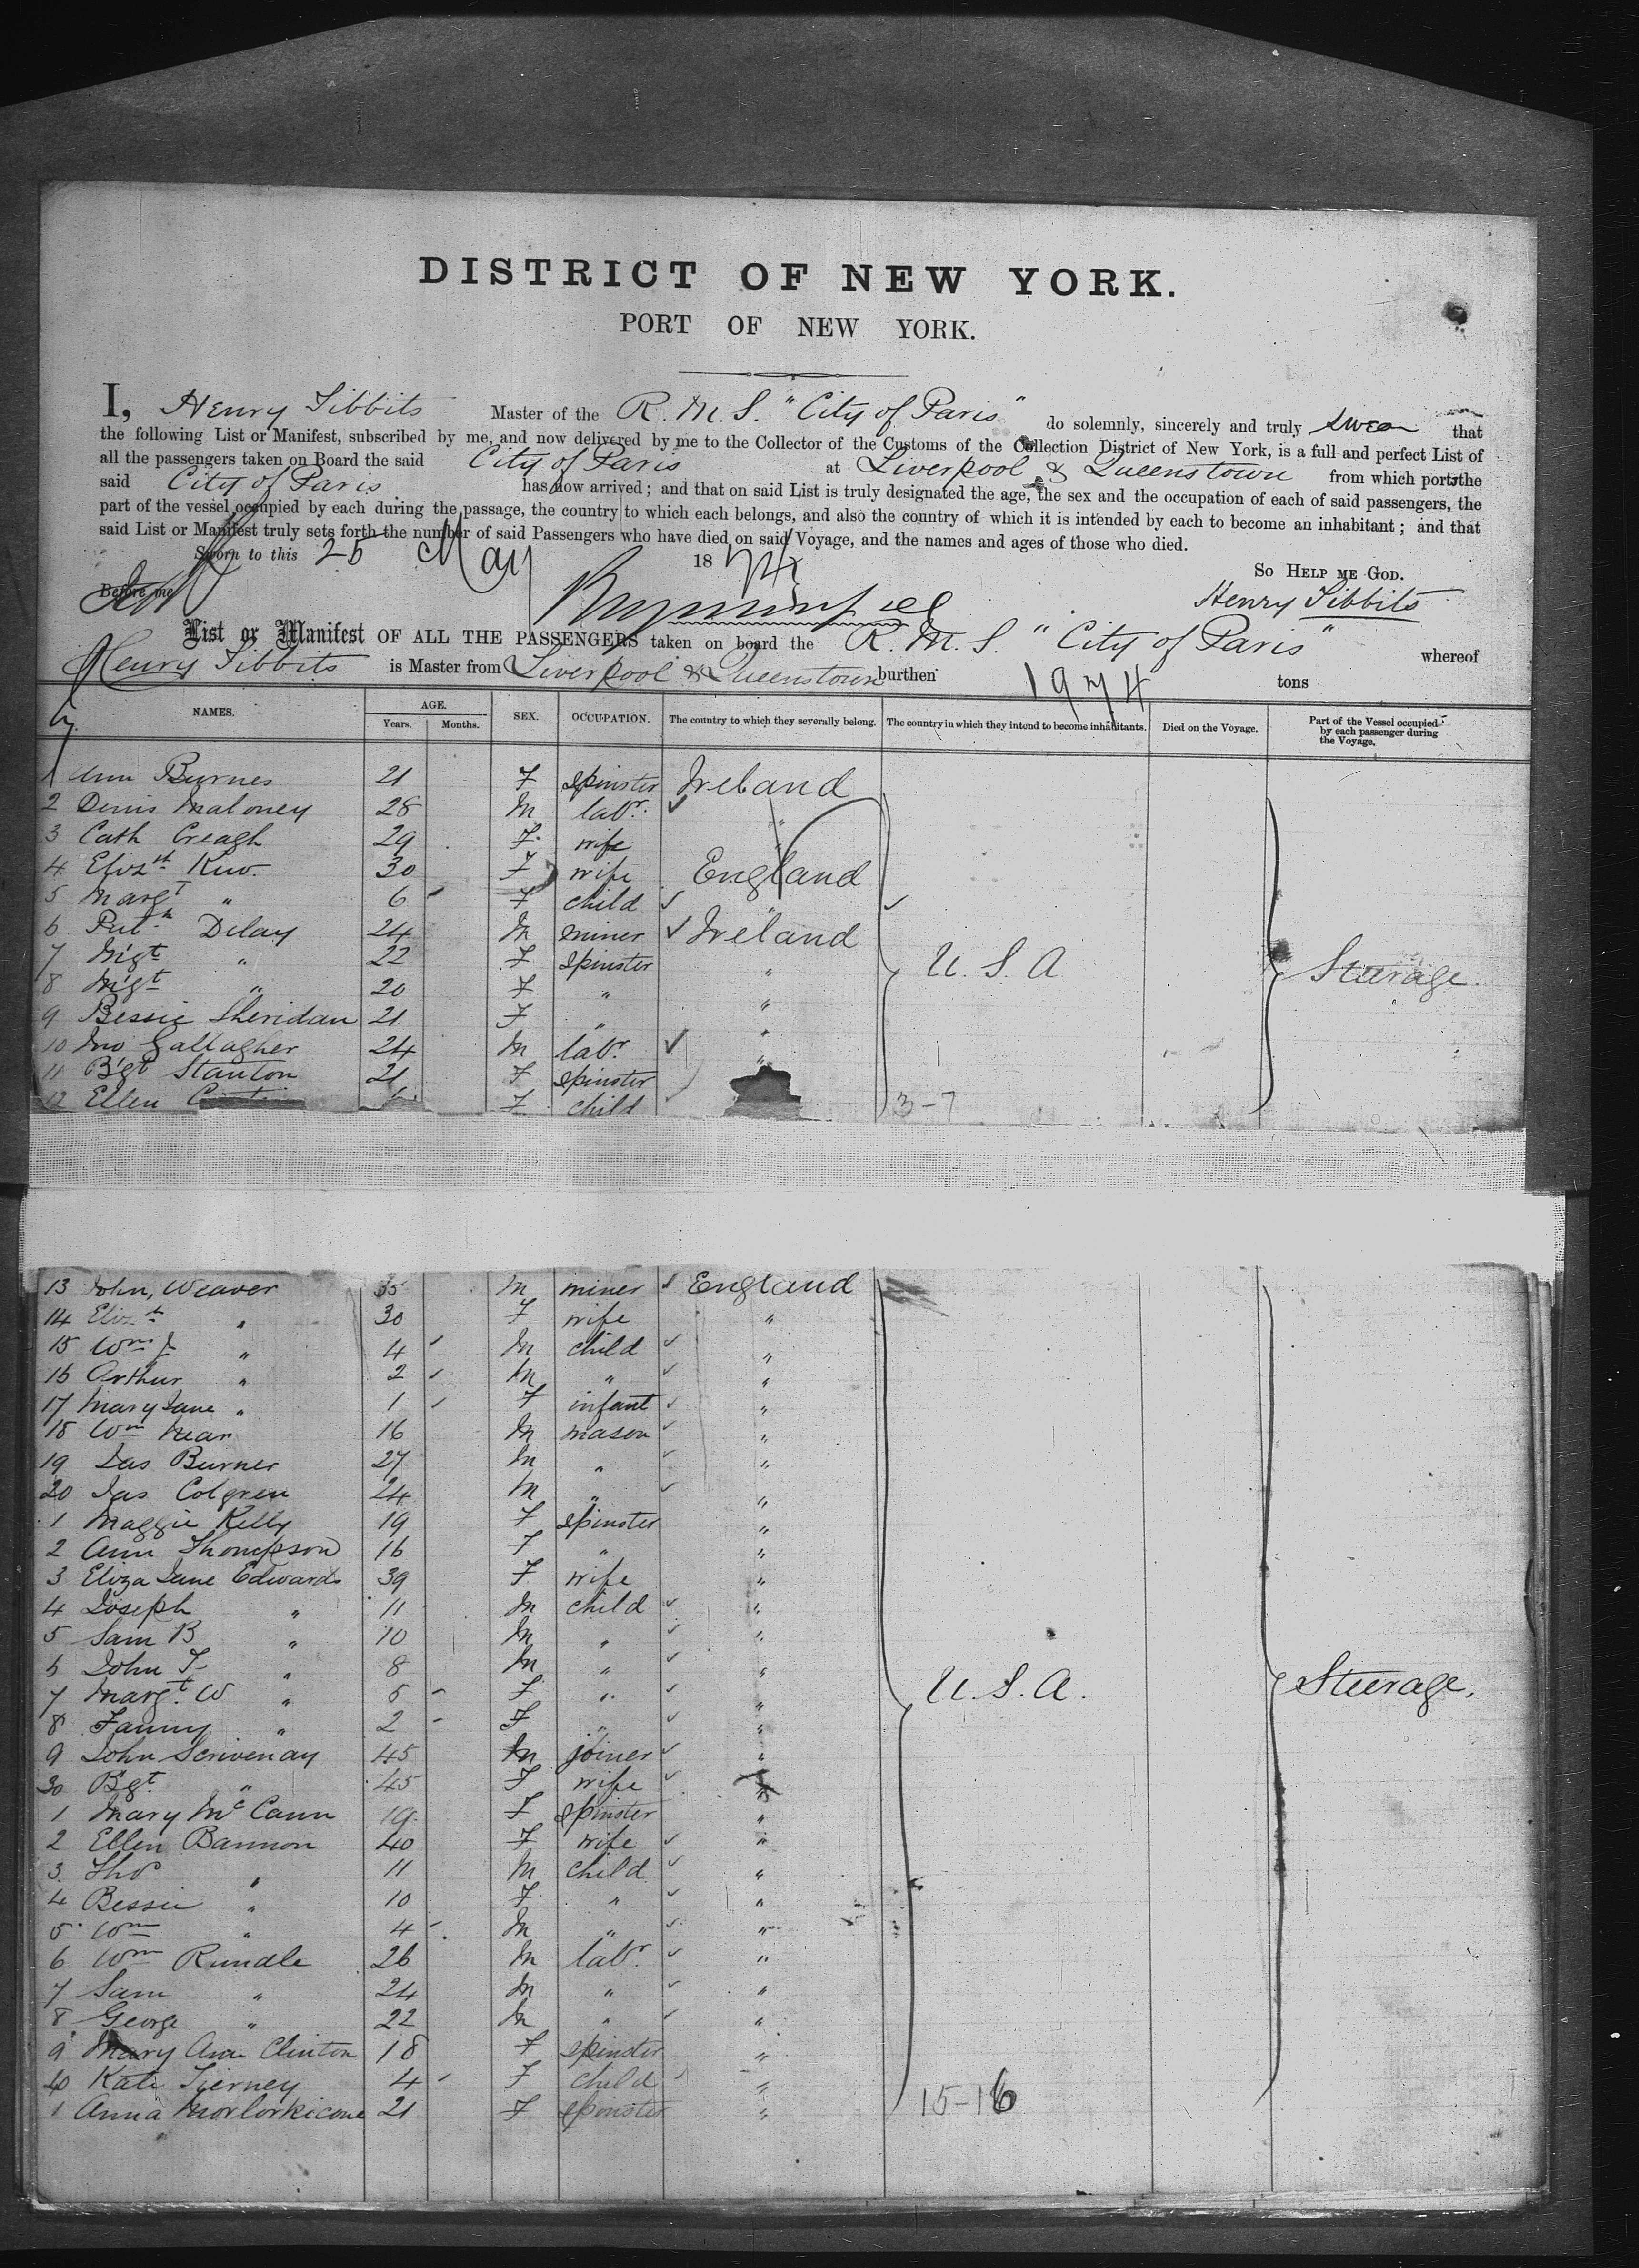 DISTRICT OF NEW YORK.
PORT OF NEW YORK.
I, Henry Tibbits Master of the R. M. S. "City of Paris" do solemnly, sincerely and truly swear that
the following List or Manifest, subscribed by me, and now delivered by me to the Collector of the Customs of the Collection District of New York, is a full and perfect List of
all the passengers taken on Board the said City of Paris at Liverpool & Queenstown from which ports the
said City of Paris has now arrived; and that on said List is truly designated the age, the sex and the occupation of each of said passengers, the
part of the vessel occupied by each during the passage, the country to which each belongs, and also the country of which it is intended by each to become an inhabitant; and that
said List or Manifest truly sets forth the number of said Passengers who have died on said Voyage, and the names and ages of those who died.
Sworn to this 25 May 1874 So HELP ME GOD.
Before me Henry Tibbits
List or Manifest OF ALL THE PASSENGERS taken on board the R. M. S. "City of Paris" whereof
Henry Tibbits is Master from Liverpool & Queenstown burthen 1974 tons
NAMES. AGE. Years. Months. SEX. OCCUPATION. The country to which they severally belong. The country in which they intend to become inhabitants. Died on the Voyage. Part of the Vessel occupied by each passenger during the Voyage.
1 Ann Burnes 21 F spinster Ireland
2 Denis Maloney 28 M labr. "
3 Cath Creagh 29 F wife "
4 Elizth Kew. 30 F wife England
5 Margt " 6 F child "
6 Patk Delay 24 M miner Ireland
7 Mgt " 22 F spinster " U. S. A Steerage
8 Mgt " 20 F " "
9 Bessie Sheridan 21 F " "
10 Jno Gallagher 24 M labr. "
11 Bgt Stanton 21 F spinster "
12 Ellen F child 3-7
13 John, Weaver 35 M miner England
14 Elizth " 30 F wife "
15 Wm J " 4 M child "
16 Arthur " 2 M " "
17 Mary Jane " 1 F infant "
18 Wm Near 16 M mason "
19 Jas Burner 27 M " "
20 Jas Colgren 24 M " "
1 Maggie Kelly 19 F spinster "
2 Ann Thompson 16 F " "
3 Eliza Jane Edwards 39 F wife "
4 Joseph " 11 M child "
5 Sam B " 10 M " "
6 John T " 8 M " "
7 Margt. W " 5 F " " U. S. A. Steerage,
8 Fanny " 2 F " "
9 John Scrivenay 45 M joiner "
30 Bgt. " 45 F wife "
1 Mary McCann 19 F spinster "
2 Ellen Bannon 40 F wife "
3 Tho " 11 M child "
4 Bessie " 10 F " "
5 Wm " 4 M " "
6 Wm Rundle 26 M labr. "
7 Sam " 24 M " "
8 George " 22 M " "
9 Mary Ann Clinton 18 F spinster "
40 Kate Tierney 4 F child "
1 Anna 21 F spinster " 15-16